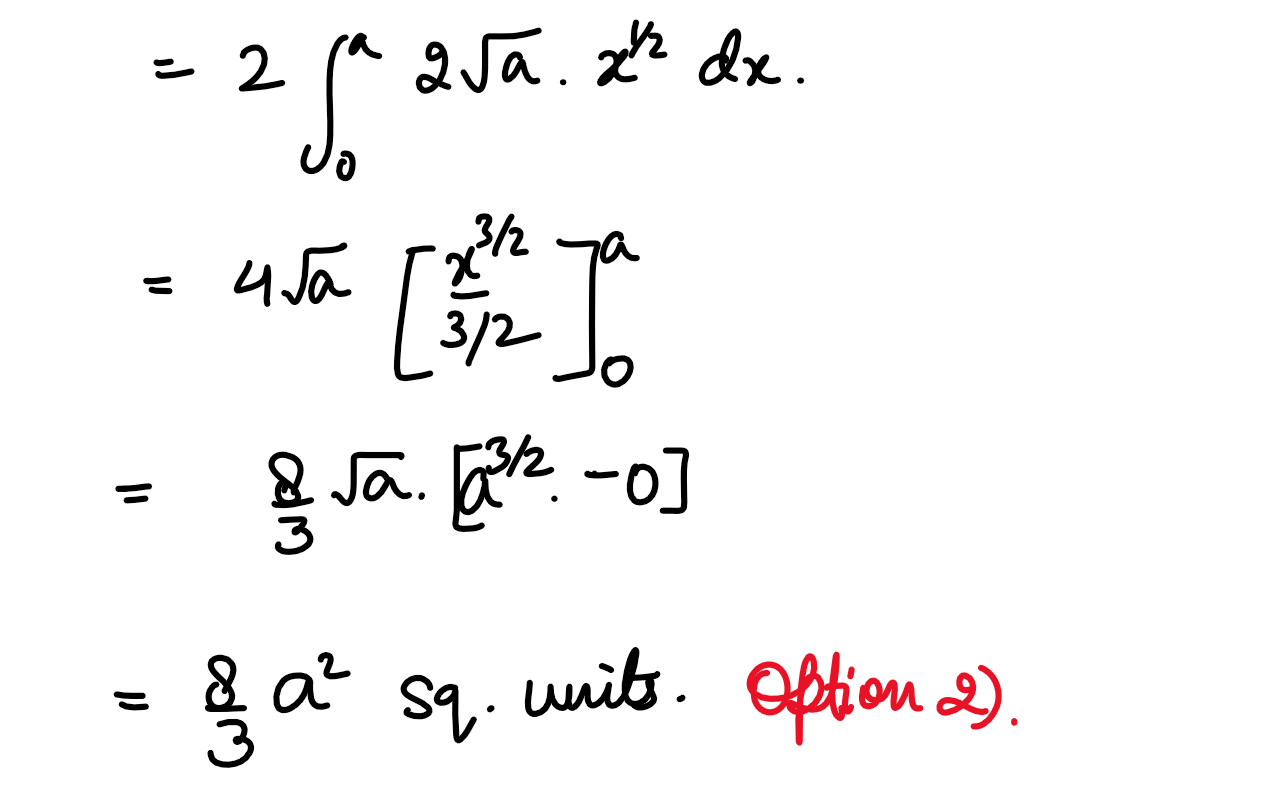 = 2 ∫₀ᵃ 2√a . x^1/2 dx .
= 4√a [x^3/2 / 3/2]₀ᵃ
= 8/3 √a . [a^3/2 . - 0]
= 8/3 a² sq. units. Option 2).